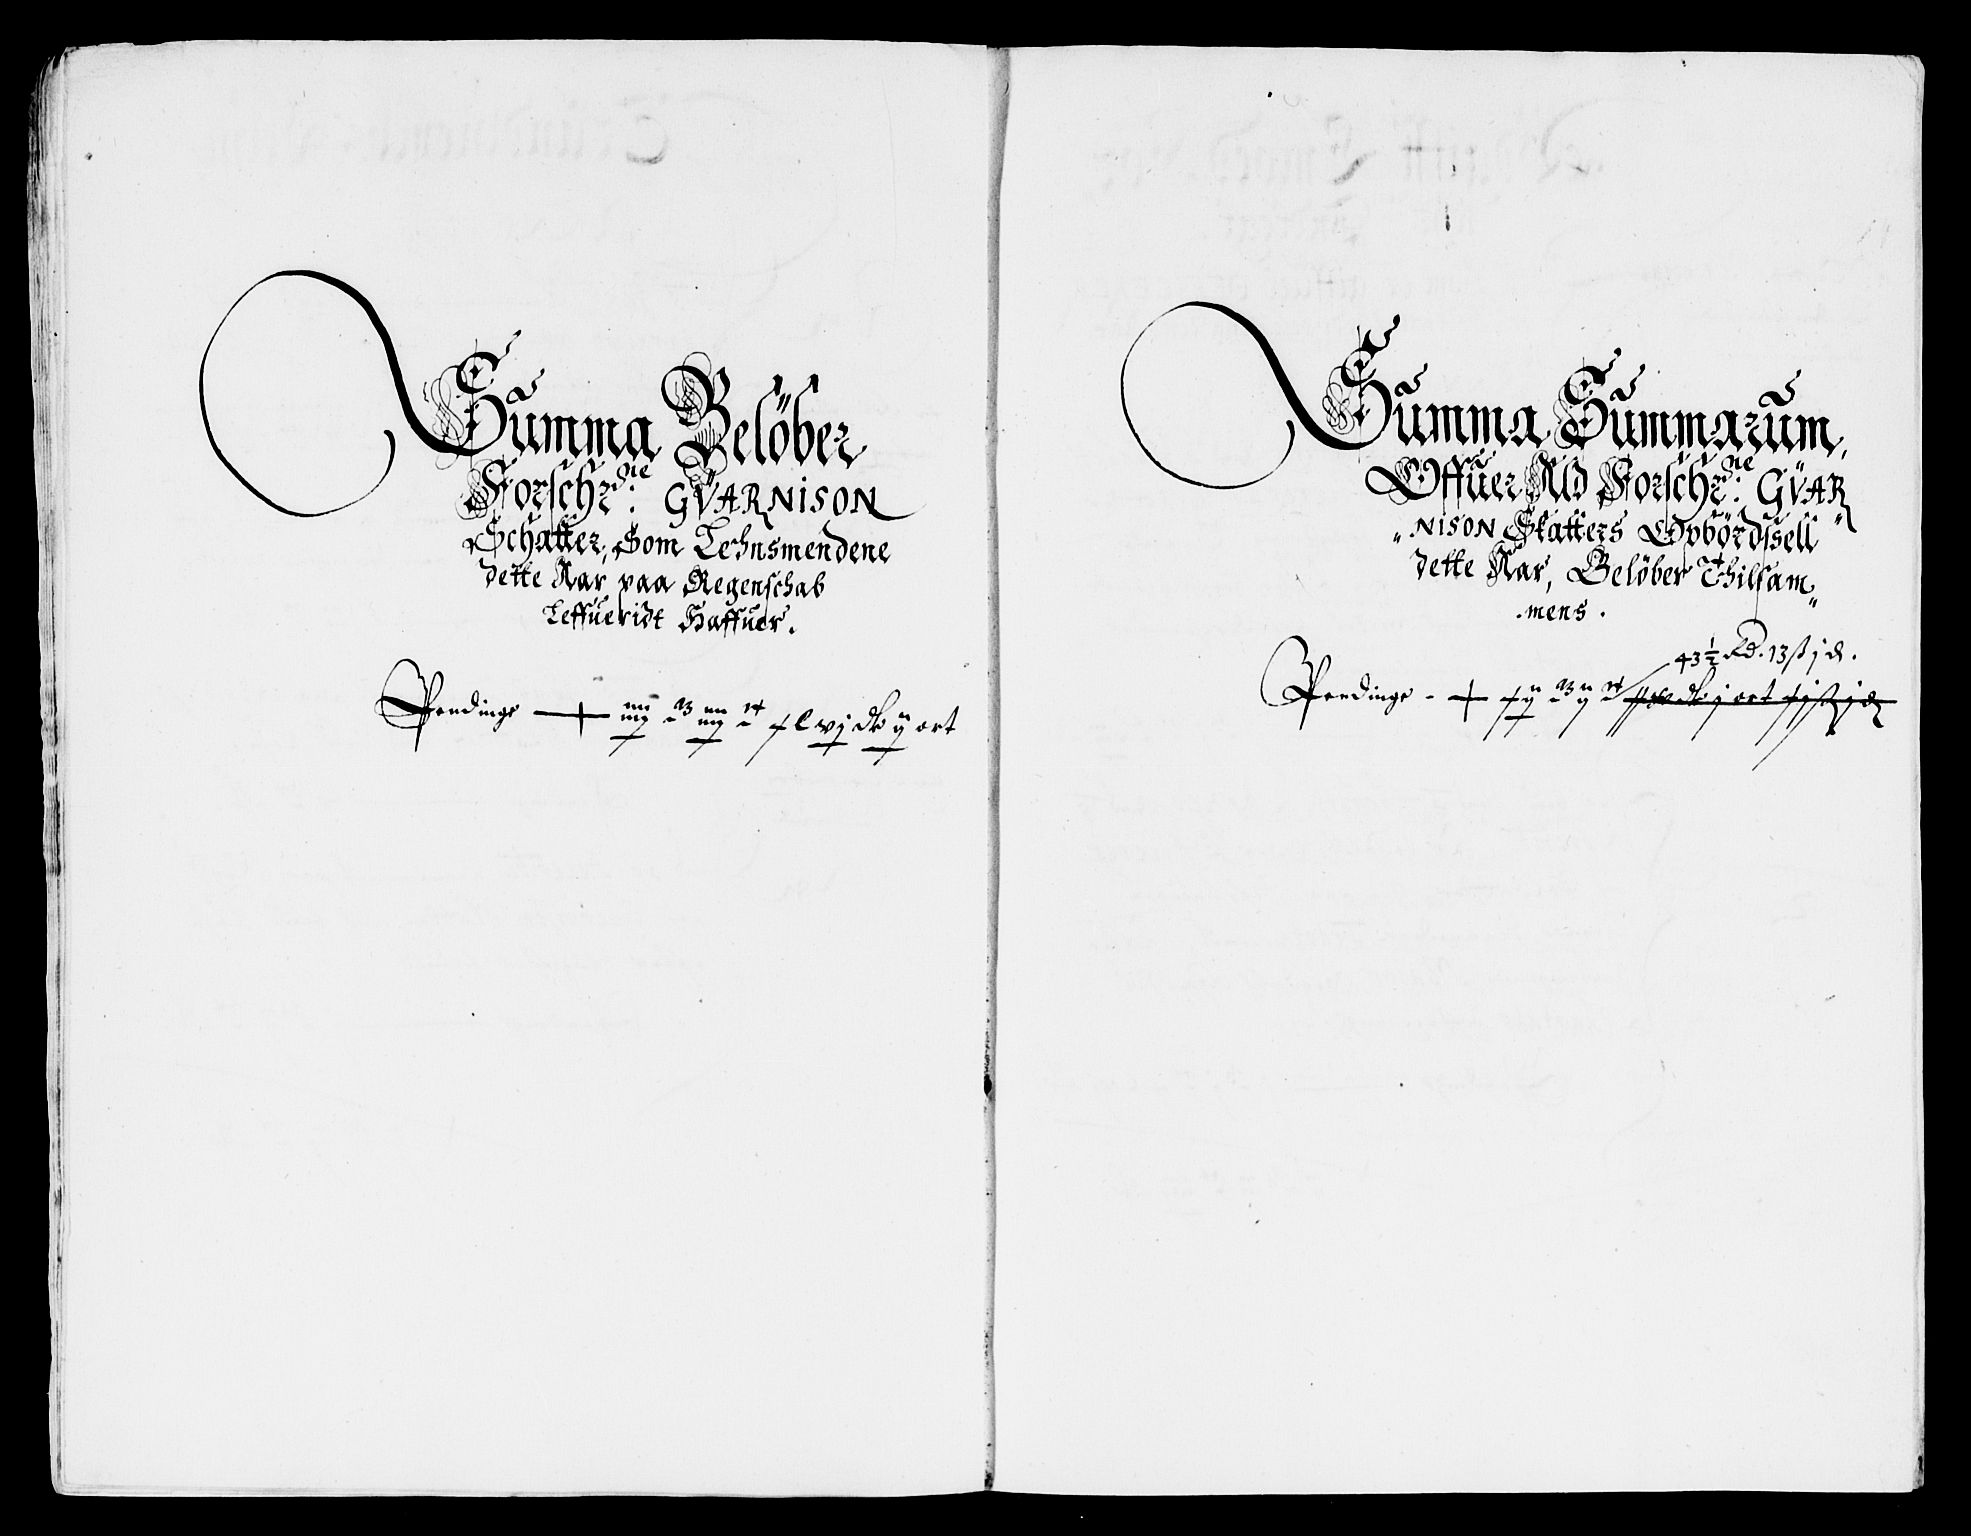 Summa Belöber
Forschr:ne GVARNISON
Schatter, Som Lehnsmendene
dette Aar paa Regenschab
Leffueridt Haffuer.
Pendinge ort
Summa Summarum,
Offuer Ald Forschr:ne GVAR„
„NISON Skatters Opbördssell
dette Aar, Belöber Thilsam„
mens.
43½ Rd. 13 ß j d.
Pendinge ort